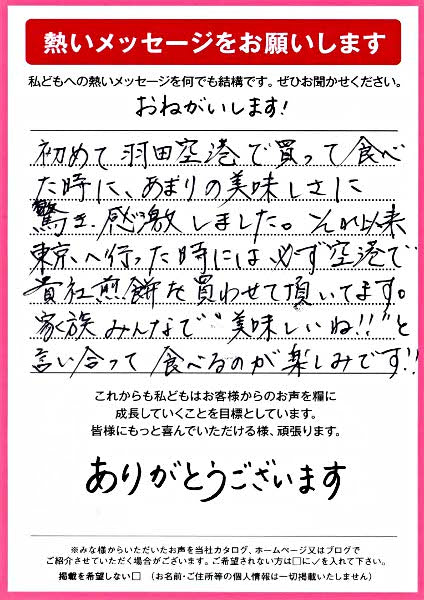 熱いメッセージをお願いします
私どもへの熱いメッセージを何でも結構です。ぜひお聞かせください。
おねがいします!
初めて羽田空港で買って食べ
た時に、あまりの美味しさに
驚き、感激しました。それ以来
東京へ行った時には必ず空港で
貴社煎餅を買わせて頂いてます。
家族みんなで“美味しいね!!”と
言い合って食べるのが楽しみです!!
これからも私どもはお客様からのお声を糧に
成長していくことを目標としています。
皆様にもっと喜んでいただける様、頑張ります。
ありがとうございます
※みな様からいただいたお声を当社カタログ、ホームページ又はブログで
ご紹介させていただく場合がございます。ご希望されない方は□に✓を入れて下さい。
掲載を希望しない□ (お名前・ご住所等の個人情報は一切掲載いたしません)